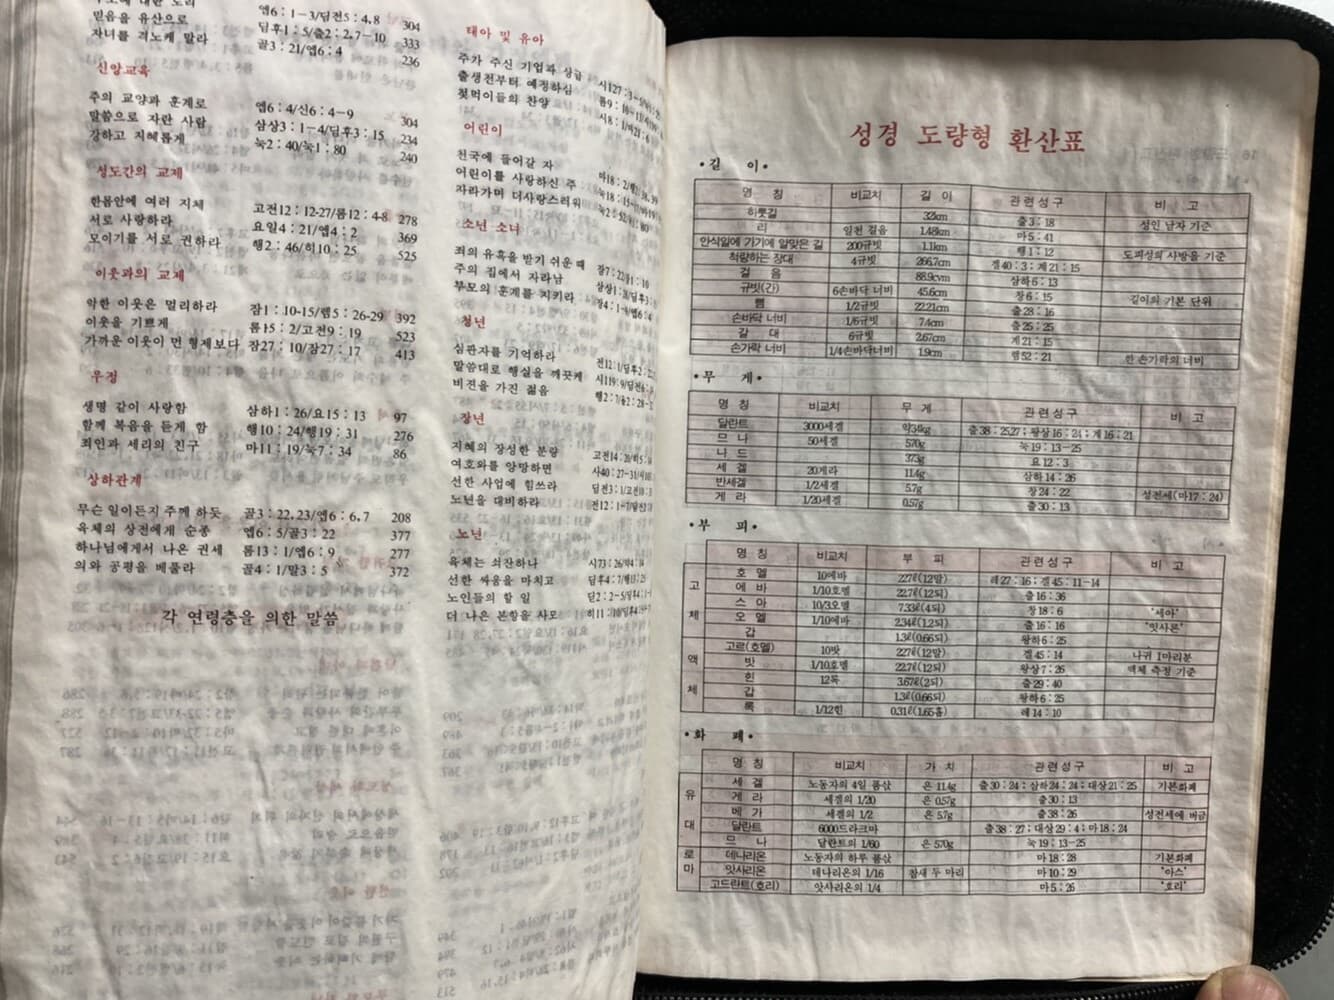 앱6 : 1-3/딤전5 : 4,8 304
믿음을 유산으로 딤후1 : 5/출2 : 2,7-10 333
자녀를 격노케 말라 골3 : 21/엡6 : 4 236
신앙교육
주의 교양과 훈계로 엡6 : 4/신6 : 4-9 304
말씀으로 자란 사람 삼상3 : 1-4/딤후3 : 15 234
강하고 지혜롭게 눅2 : 40/눅1 : 80 240
성도간의 교제
한몸안에 여러 지체 고전12 : 12-27/롬12 : 4-8 278
서로 사랑하라 요일4 : 21/엡4 : 2 369
모이기를 서로 권하라 행2 : 46/히10 : 25 525
이웃과의 교제
악한 이웃은 멀리하라 잠1 : 10-15/렘5 : 26-29 392
이웃을 기쁘게 롬15 : 2/고전9 : 19 523
가까운 이웃이 먼 형제보다 잠27 : 10/잠27 : 17 413
우정
생명 같이 사랑함 삼하1 : 26/요15 : 13 97
함께 복음을 듣게 함 행10 : 24/행19 : 31 276
죄인과 세리의 친구 마11 : 19/눅7 : 34 86
상하관계
무슨 일이든지 주께 하듯 골3 : 22,23/엡6 : 6,7 208
육체의 상전에게 순종 엡6 : 5/골3 : 22 377
하나님에게서 나온 권세 롬13 : 1/엡6 : 9 277
의와 공평을 베풀라 골4 : 1/말3 : 5 372
각 연령층을 의한 말씀
태아 및 유아
주가 주신 기업과 상급 시127 : 3-5
출생전부터 예정하심 롬9 : 10-13
젖먹이들의 찬양 시8 : 1/마21 : 6
어린이
천국에 들어갈 자 마18 : 2
어린이를 사랑하신 주 눅18 : 15-17
자라가며 더사랑스러워 눅2 : 52
소년 소녀
죄의 유혹을 받기 쉬운 때 잠7 : 22
주의 집에서 자라남
부모의 훈계를 지키라 잠4 : 1-4/엡6 : 4
청년
심판자를 기억하라 전12 : 1/딤후2 : 22
말씀대로 행실을 깨끗케 시119 : 9/딤전6
비전을 가진 젊음 행2 : 7/욜2 : 28
장년
지혜의 장성한 분량 고전14 : 20
여호와를 앙망하면 사40 : 27-31
선한 사업에 힘쓰라 딤전3 : 1/고전10
노년을 대비하라 전12 : 1-7
노년
육체는 쇠잔하나 시73 : 26
선한 싸움을 마치고 딤후4 : 7
노인들의 할 일 딛2 : 2-5
더 나은 본향을 사모 히11 : 10/딤후4
성경 도량형 환산표
•길 이•
명 칭 비교치 길 이 관련성구 비 고
하룻길 32km 출3 : 18 성인 남자 기준
리 일천 걸음 1.48km 마5 : 41
안식일에 가기에 알맞은 길 200규빗 1.1km 행1 : 12 도피성의 사방을 기준
척량하는 장대 4규빗 266.7cm 겔40 : 3 ; 계21 : 15
걸 음 88.9cvm 삼하6 : 13
규빗(간) 6손바닥 너비 45.6cm 창6 : 15 길이의 기본 단위
뼘 1/2규빗 22.21cm 출28 : 16
손바닥 너비 1/6규빗 7.4cm 출25 : 25
갈 대 6규빗 2.67cm 계21 : 15
손가락 너비 1/4손바닥너비 1.9cm 렘52 : 21 한 손가락의 너비
•무 게•
명 칭 비교치 무 게 관련성구 비 고
달란트 3000세겔 약34kg 출38 : 25,27 ; 왕상16 : 24 ; 계16 : 21
므 나 50세겔 570g 눅19 : 13-25
나 드 373g 요12 : 3
세 겔 20게라 11.4g 삼하14 : 26
반세겔 1/2세겔 5.7g 창24 : 22 성전세(마17 : 24)
게 라 1/20세겔 0.57g 출30 : 13
•부 피•
명 칭 비교치 부 피 관련성구 비 고
고체
호 멜 10에바 227ℓ(12말) 레27 : 16 ; 겔45 : 11-14
에 바 1/10호멜 22.7ℓ(12되) 출16 : 36
스 아 10/3오멜 7.33ℓ(4되) 창18 : 6 '세아'
오 멜 1/10에바 2.34ℓ(1.2되) 출16 : 16 '잇사론'
갑 1.3ℓ(0.66되) 왕하6 : 25
액체
고르(호멜) 10밧 227ℓ(12말) 겔45 : 14 나귀 1마리분
밧 1/10호멜 22.7ℓ(12되) 왕상7 : 26 액체 측정 기준
힌 12록 3.67ℓ(2되) 출29 : 40
갑 1.3ℓ(0.66되) 왕하6 : 25
록 1/12힌 0.31ℓ(1.65홉) 레14 : 10
•화 폐•
명 칭 비교치 가 치 관련성구 비 고
유대
세 겔 노동자의 4일 품삯 은 11.4g 출30 : 24 ; 삼하24 : 24 ; 대상21 : 25 기본화폐
게 라 세겔의 1/20 은 0.57g 출30 : 13
베 가 세겔의 1/2 은 5.7g 출38 : 26 성전세에 버금
달란트 6000드라크마 출38 : 27 ; 대상29 : 4 ; 마18 : 24
므 나 달란트의 1/60 은 570g 눅19 : 13-25
로마
데나리온 노동자의 하루 품삯 마18 : 28 기본화폐
앗사리온 데나리온의 1/16 참새 두 마리 마10 : 29 '아스'
고드란트(호리) 앗사리온의 1/4 마5 : 26 '호리'